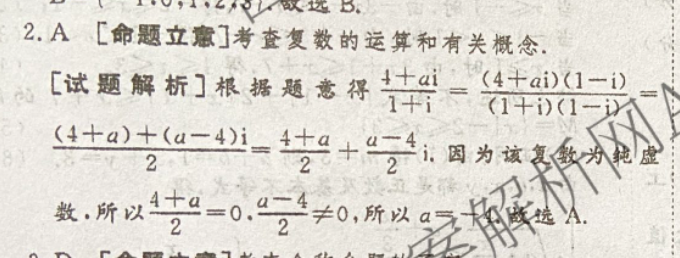 1,0,1,2,3}.故选 B.
2.A [命题立意]考查复数的运算和有关概念.
[试题解析]根据题意得 (4+ai)/(1+i) = (4+ai)(1-i)/(1+i)(1-i) =
((4+a)+(a-4)i)/2 = (4+a)/2 + (a-4)/2 i. 因为该复数为纯虚
数.所以 (4+a)/2 = 0. (a-4)/2 ≠ 0,所以 a=-4.故选 A.
案解析网